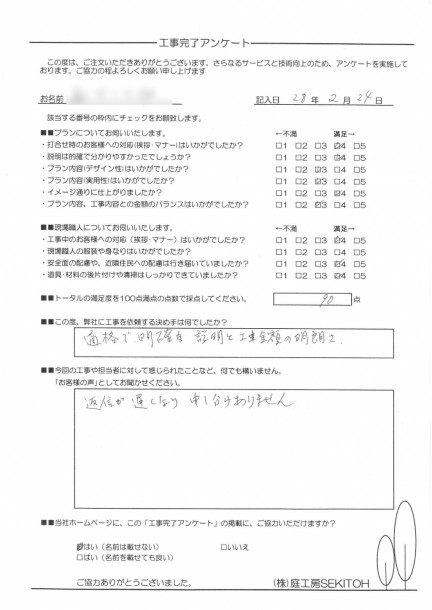 工事完了アンケート
この度は、ご注文いただきありがとうございます。さらなるサービスと技術向上のため、アンケートを実施して
おります。ご協力の程よろしくお願い申し上げます
お名前 記入日 28 年 2 月 24 日
該当する番号の枠内にチェックをお願致します。
■■プランについてお伺いいたします。 ←不満 満足→
・打合せ時のお客様への対応(挨拶・マナー)はいかがでしたか? □1 □2 □3 ☑4 □5
・説明は的確で分かりやすかったでしょうか? □1 □2 □3 ☑4 □5
・プラン内容(デザイン性)はいかがでしたか? □1 □2 ☑3 □4 □5
・プラン内容(実用性)はいかがでしたか? □1 □2 ☑3 □4 □5
・イメージ通りに仕上がりましたか? □1 □2 □3 ☑4 □5
・プラン内容、工事内容との金額のバランスはいかがでしたか? □1 □2 ☑3 □4 □5
■■現場職人についてお伺いいたします。 ←不満 満足→
・工事中のお客様への対応(挨拶・マナー)はいかがでしたか? □1 □2 □3 ☑4 □5
・現場職人の服装や身なりはいかがでしたか? □1 □2 □3 ☑4 □5
・安全面の配慮や、近隣住民への配慮は行き届いていましたか? □1 □2 □3 ☑4 □5
・道具・材料の後片付けや清掃はしっかりできていましたか? □1 □2 □3 ☑4 □5
■■トータルの満足度を100点満点の点数で採点してください。 90 点
■■この度、弊社に工事を依頼する決め手は何でしたか?
適格で明確な説明と工事金額の明朗さ
■■今回の工事や担当者に対して感じられたことなど、何でも構いません。
「お客様の声」としてお聞かせください。
返信が遅くなり申し分けありません
■■当社ホームページに、この「工事完了アンケート」の掲載に、ご協力いただけますか?
☑はい(名前は載せない) □いいえ
□はい(名前を載せても良い)
ご協力ありがとうございました。 (株)庭工房SEKITOH